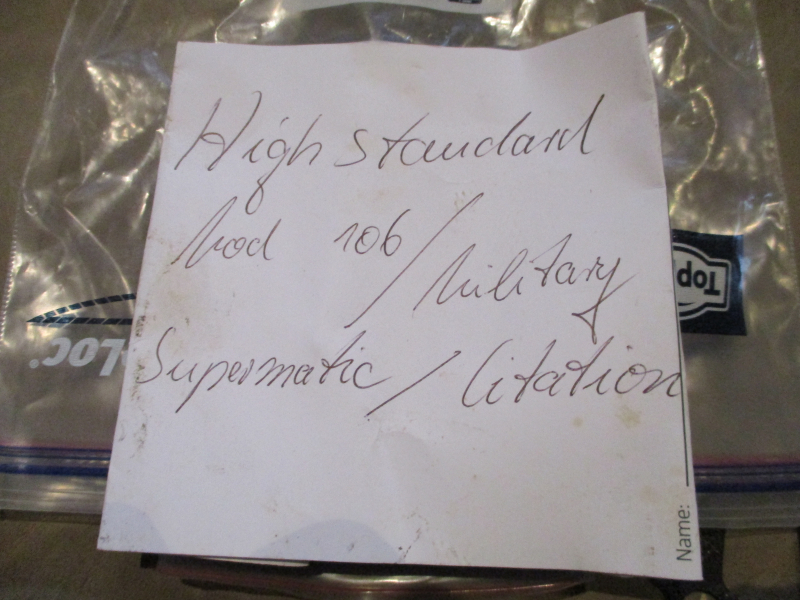 High Standard
Mod 106 / Military
Supermatic / Citation
Name:
TOP
LOC®